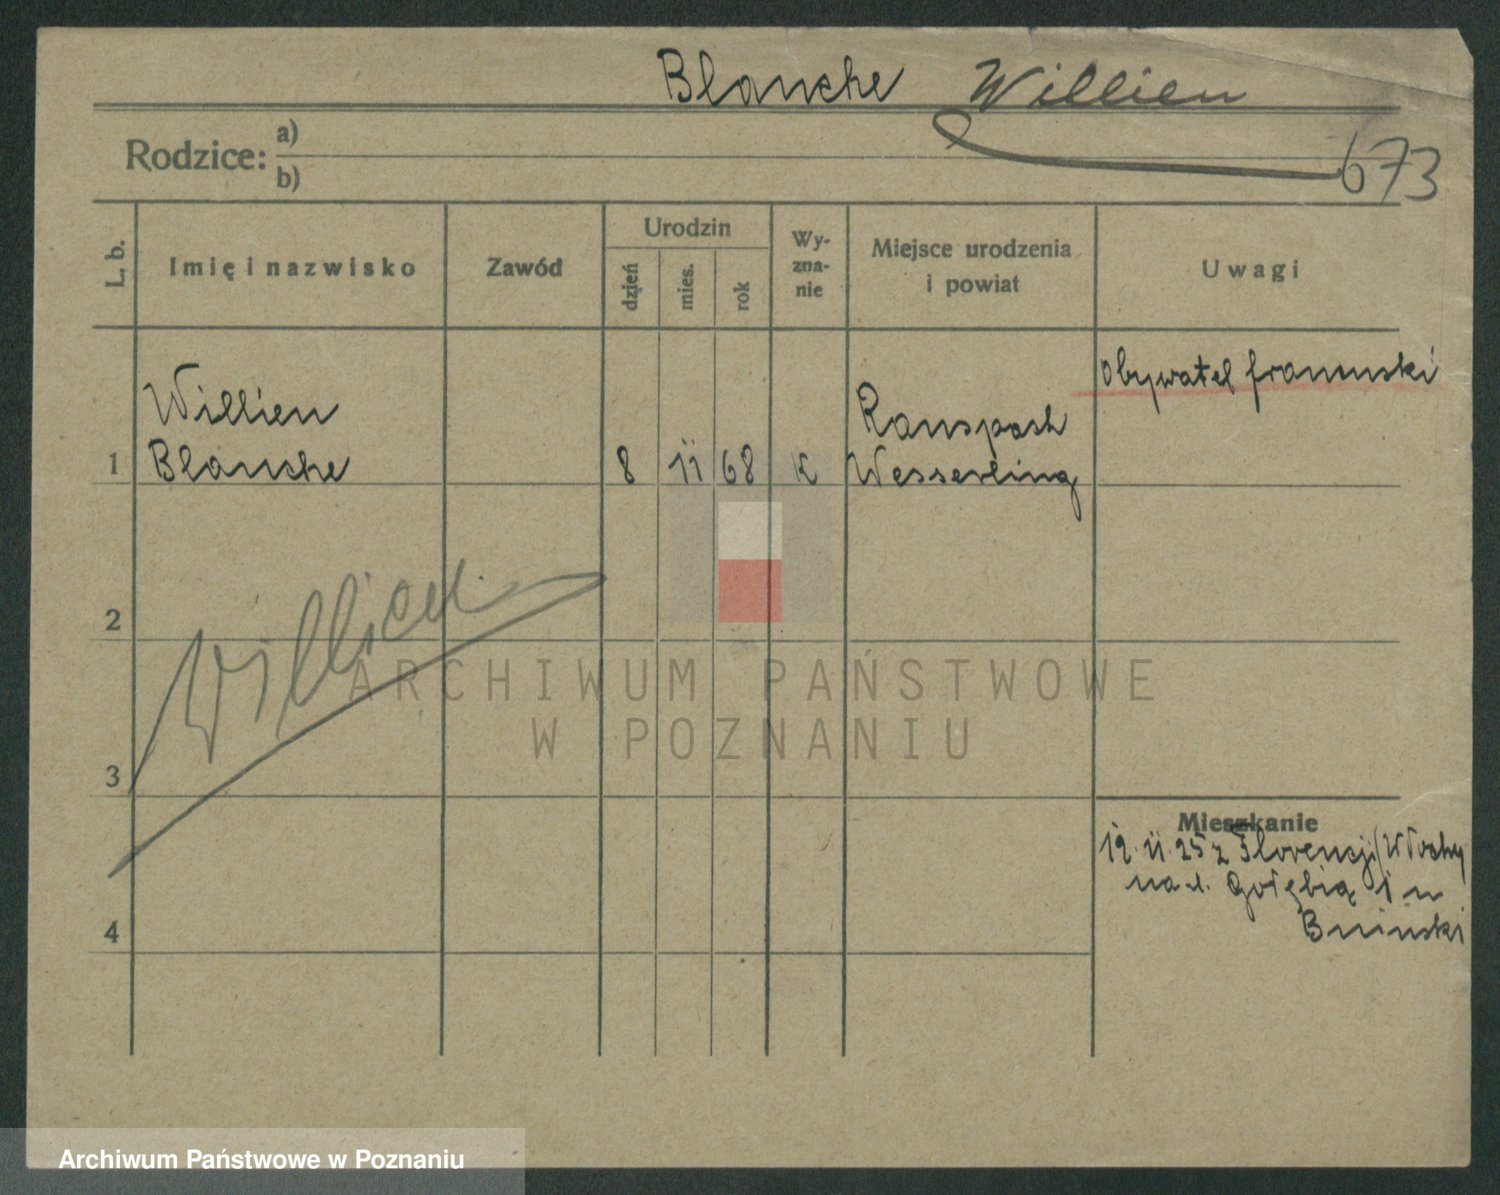 Blanche Willien
Rodzice: a)
b)
673
L. b.
Imię i nazwisko
Zawód
Urodzin
dzień
mies.
rok
Wy-
zna-
nie
Miejsce urodzenia
i powiat
Uwagi
obywatel francuski
Willien
Ranspach
1 Blanche 8 11 68 K Wesserling
2
Willien
3
4
Mieszkanie
12. 11. 25 z Florencji (Włochy
na ul. Gołębią 1 u
Bninski
ARCHIWUM PAŃSTWOWE
W POZNANIU
Archiwum Państwowe w Poznaniu